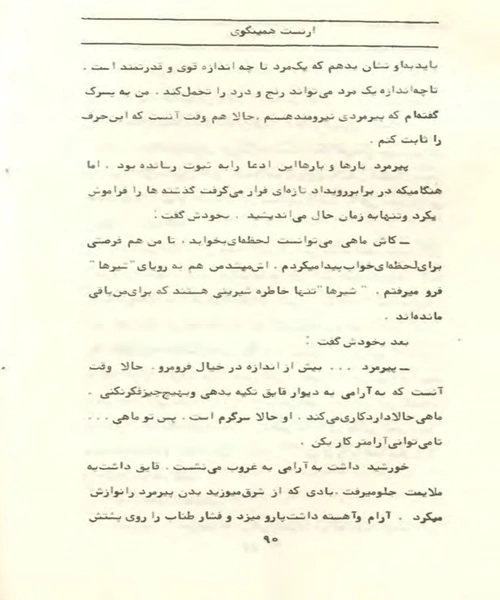 ارنست همینگوی
باید به‌او نشان بدهم که یک‌مرد تا چه اندازه قوی و قدرتمند است .
تاچه‌اندازه یک مرد می‌تواند رنج و درد را تحمل‌کند . من به پسرک
گفته‌ام که پیرمردی نیرومندهستم ،حالا هم وقت آنست که این‌حرف
را ثابت کنم .
پیرمرد بارها و بارهااین ادعا رابه ثبوت رسانده بود . اما
هنگامیکه در برابررویداد تازه‌ای قرار می‌گرفت گذشته ها را فراموش
میکرد وتنهابه زمان حال می‌اندیشید . بخودش گفت :
ــ کاش ماهی می‌توانست لحظه‌ای بخوابد ، تا من هم فرصتی
برای لحظه‌ای‌خواب‌پیدامیکردم . من هم به رویای "شیرها"
فرو میرفتم . "شیرها"تنها خاطره شیرینی هستند که برای‌من‌باقی
مانده‌اند .
بعد بخودش گفت :
ــ پیرمرد ... بیش از اندازه در خیال فرومرو . حالا وقت
آنست که به‌آرامی به دیوار قایق تکیه بدهی وبهیچ‌چیزفکرنکنی .
ماهی‌حالاداردکاری‌می‌کند . او حالا سرگرم است . پس تو ماهی ...
تامی‌توانی‌آرامتر کار بکن .
خورشید داشت به‌آرامی به غروب می‌نشست . قایق داشت‌به
ملایمت جلومیرفت .بادی که از شرق‌میوزید بدن پیرمرد رانوازش
میکرد . آرام وآهسته داشت‌پارو میزد و فشار طناب را روی پشتش
۹۰